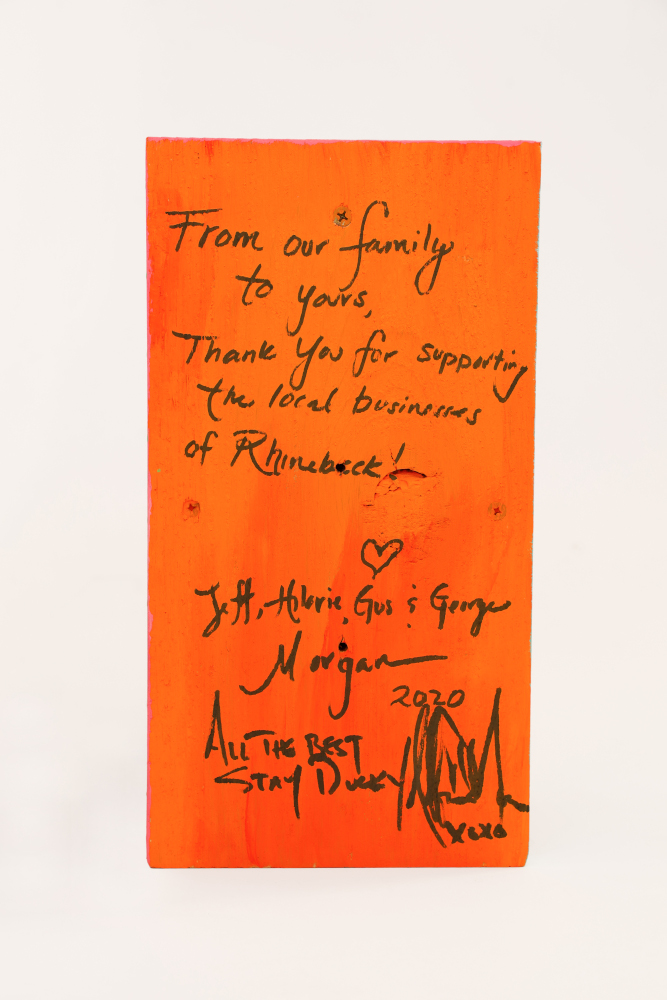 From our family
to yours,
Thank You for supporting
the local businesses
of Rhinebeck!
Jeff, Hilarie, Gus & George
Morgan
2020
ALL THE BEST
STAY DUCKY
xoxo